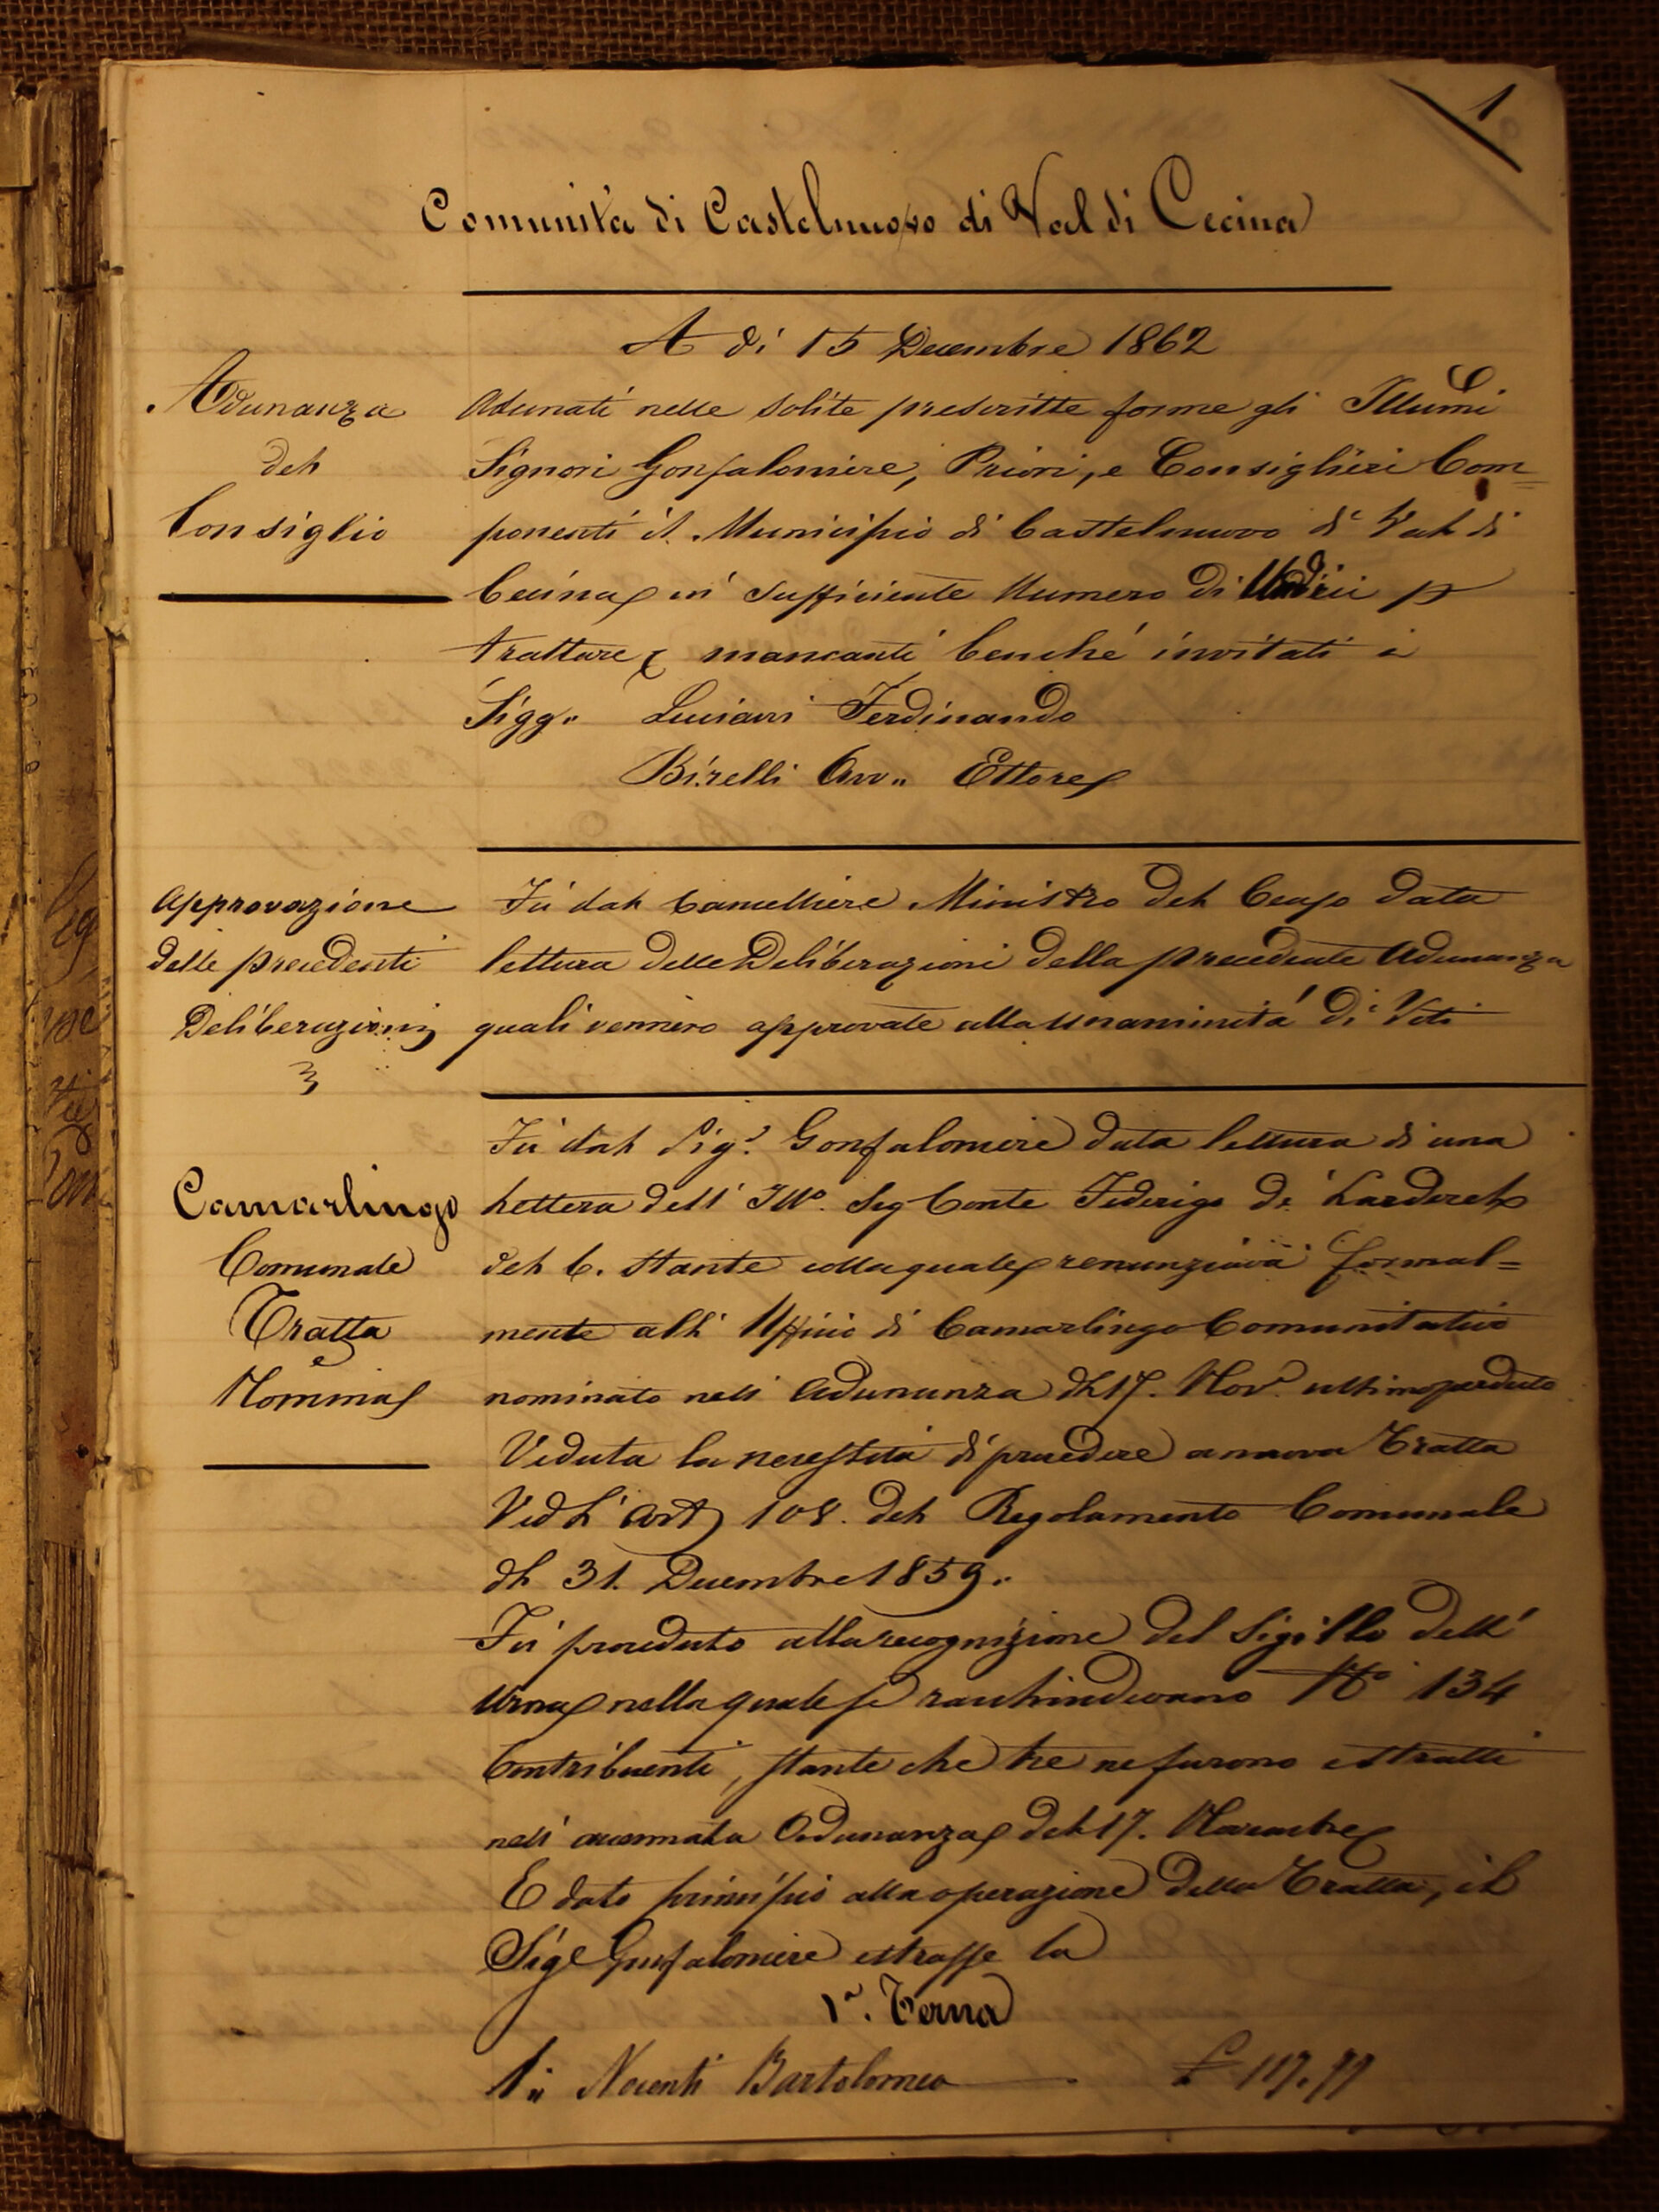 1
Comunità di Castelnuovo di Val di Cecina
A dì 15 Decembre 1862
Adunanza
del
Consiglio
Adunati nelle solite prescritte forme gli Illumi
Signori Gonfaloniere, Priori, e Consiglieri Com=
ponenti il Municipio di Castelnuovo di Val di
Cecina in sufficiente Numero di Undici p
trattare, mancanti benché invitati i
Sigg.. Luciani Ferdinando
Birelli Avv.. Ettore
Approvazione
delle precedenti
Deliberazioni
Fù dal Cancelliere Ministro del Censo data
lettura delle Deliberazioni della precedente Adunanza
quali vennero approvate alla unanimità di Voti
Camarlingo
Comunale
Tratta
e
Nomina
Fù dal Sig.r Gonfaloniere data lettura di una
Lettera dell' Illo. Sig Conte Federigo de Larderel
del 6. stante colla quale renunziava formal=
mente all' Uffizio di Camarlingo Comunitativo
nominato nell' Adunanza dl 17. Nov.e ultimo perduto
Veduta la necessità di procedere a nuova Tratta
Ved L' Art 108. del Regolamento Comunale
dl 31. Decembre 1859..
Fù proceduto alla recognizione del Sigillo dell'
Urna nella quale si racchiudevano No 134
Contribuenti, stante che tre ne furono estratti
nell' accennata Adunanza del 17. Novembre
E dato principio alla operazione della Tratta, il
Sige Gonfaloniere estrasse la
1a. Terna
1.. Nocenti Bartolomeo £ 117.77